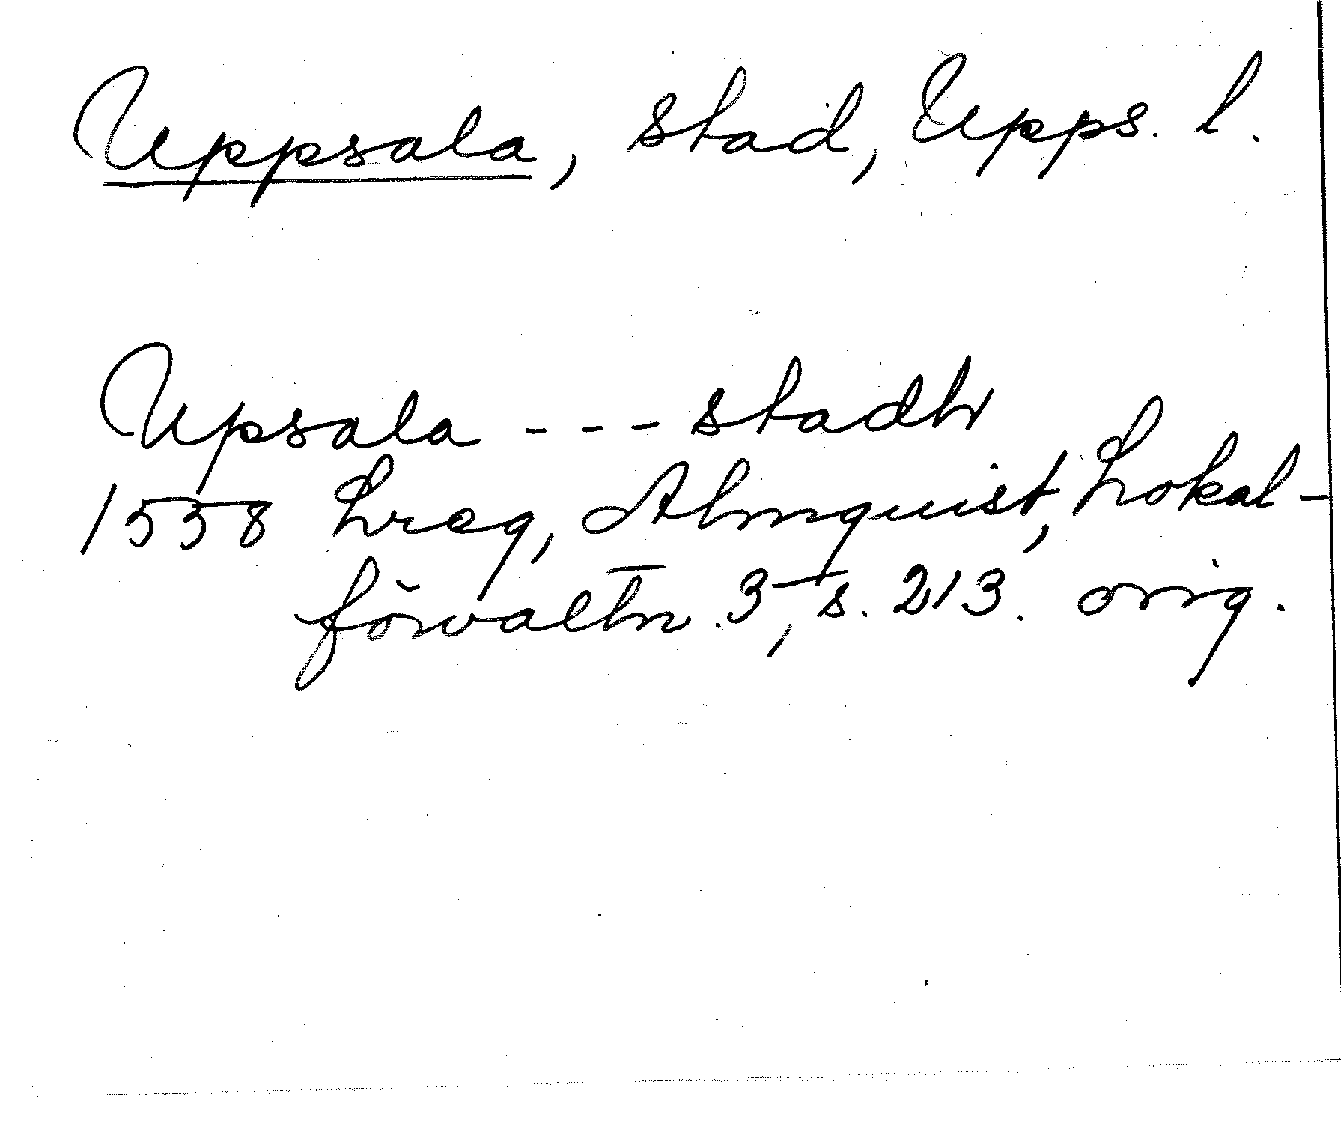 Uppsala, stad, Upps. l.
Upsala --- stadh
1558 Lreg, Almquist, Lokal-
förvaltn. 3, s. 213. orig.